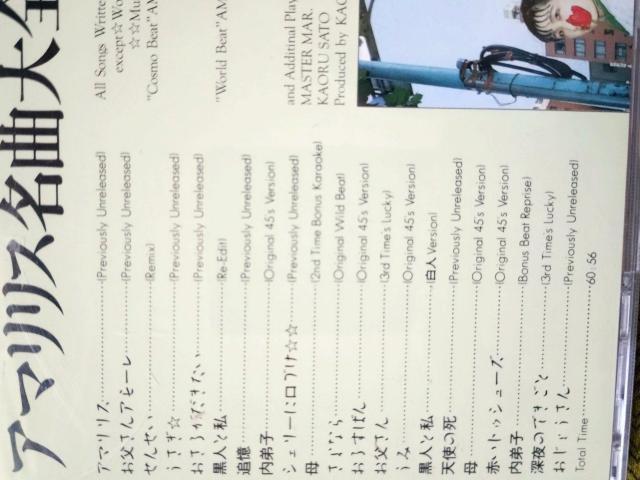 アマリリス名曲大全
アマリリス……(Previously Unreleased)
お父さんアモーレ……(Previously Unreleased)
せんせい……(Remix)
うさぎ☆……(Previously Unreleased)
……(Previously Unreleased)
黒人と私……(Re-Edit)
追憶……(Previously Unreleased)
内弟子……(Original 45's Version)
シェリーに口づけ☆☆……(Previously Unreleased)
母……(2nd Time Bonus Karaoke)
さよなら……(Original Wild Beat)
おるすばん……(Original 45's Version)
お父さん……(3rd Time's Lucky)
うみ……(Original 45's Version)
黒人と私……(白人Version)
天使の死……(Previously Unreleased)
母……(Original 45's Version)
赤いトウシューズ……(Original 45's Version)
内弟子……(Bonus Beat Reprise)
深夜のできごと……(3rd Time's Lucky)
おじょうさん……(Previously Unreleased)
Total Time……60:56
All Songs Written
except☆
☆☆
"Cosmo Beat"
"World Beat"
and Additinal Play
MASTER MAR.
KAORU SATO
Produced by